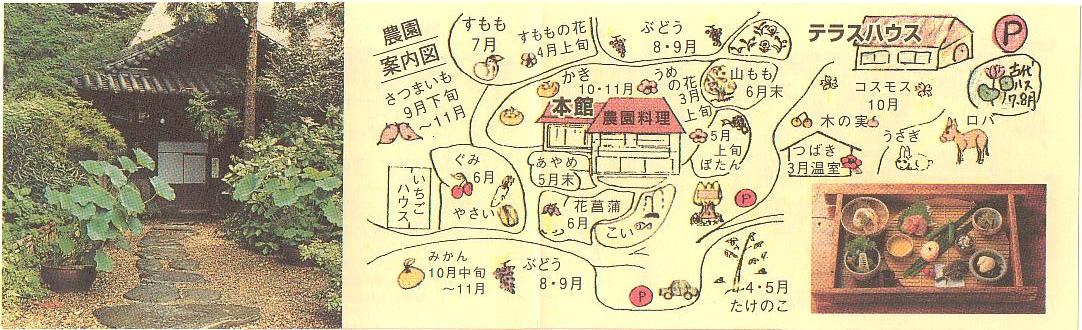 農園
案内図
すもも
7月
すももの花
4月上旬
ぶどう
8・9月
テラスハウス
P
さつまいも
9月下旬
～11月
かき
10・11月
うめ
の花
3月
上旬
山もも
6月末
古代
ハス
7.8月
コスモス
10月
本館
農園料理
木の実
ロバ
うさぎ
つばき
3月温室
5月
上旬
ぼたん
ぐみ
6月
やさい
いちご
ハウス
あやめ
5月末
花菖蒲
6月
こい
P
みかん
10月中旬
～11月
ぶどう
8・9月
P
4・5月
たけのこ